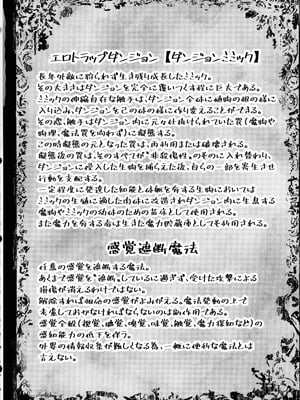 エロトラップダンジョン【ダンジョンミミック】
長年外敵に狩られず生き残り成長したミミック。
その大きさはダンジョンを完全に覆いつくす程に巨大である。
ミミックの伸縮自在な触手は、ダンジョン全域に植物の根の様に
入り込み、ダンジョンを己の体の様に作り変えることができる。
その際、触手はダンジョン内に元々仕掛けられていた罠(魔物や
物理、魔法罠を問わず)に擬態する。
この時擬態の元となった罠は、再利用または破壊される。
擬態後の罠は、そのすべてが"非殺傷"のものに入れ替わり、
ダンジョンに侵入した生物を捕らえた後、自らの一部を寄生させ
行動を支配する。
一定程度に発達した知能と母胎を有する生物においては
ミミックの生殖に適した肉体に改造されダンジョン内に生息する
魔物やミミックの幼体のための苗床として使用される。
また魔力を有する者は生きた魔力貯蔵庫としても利用される。
感覚遮断魔法
任意の感覚を遮断する魔法。
あくまで感覚を"遮断"しているに過ぎず、受けた攻撃による
損傷が消えるわけではない。
解除すれば相応の感覚がよみがえる。魔法発動の上で
考慮しておかなければならないのは副作用である。
感覚全般(視覚、聴覚、嗅覚、味覚、触覚、魔力探知など)の
感知能力の低下を伴う。
外界の情報収集が難しくなる為、一概に便利な魔法とは
言えない。